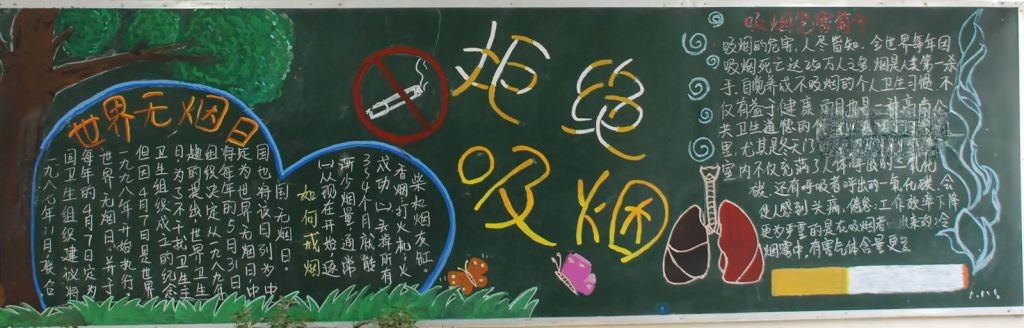 世界无烟日
一九八七年11月联合
国卫生组织建议将
每年的4月7日定为
世界无烟日,并于
一九八八年开始执行,
但因4月7日是世界
卫生组织成立的纪念
日,为了不干扰卫生
题的提出,世界卫生
组织决定从一九八九年
将每年的5月31日
定为世界无烟日,中
国也将该日列为中
国无烟日。
如何戒烟
(1)从现在开始逐
渐少烟量,通常
3-4个月就能
成功。(2)丢掉所有
火香烟、打火机、火
柴和烟灰缸。
拒绝
吸烟
吸烟危害简介
吸烟的危害,人尽皆知。全世界每年因
吸烟死亡达25万人之多,烟是人类第一杀
手。自觉养成不吸烟的个人卫生习惯,不
仅有益于健康,而且也是一种高尚公
共卫生道德的
里,尤其是冬天门
室内不仅充满了人体呼出的二氧化
碳,还有呼吸者呼出的一氧化碳,会
使人感到头痛、倦怠,工作效率下降,
更为严重的是在吸烟者 出来的冷
烟雾中,有害气体含量更